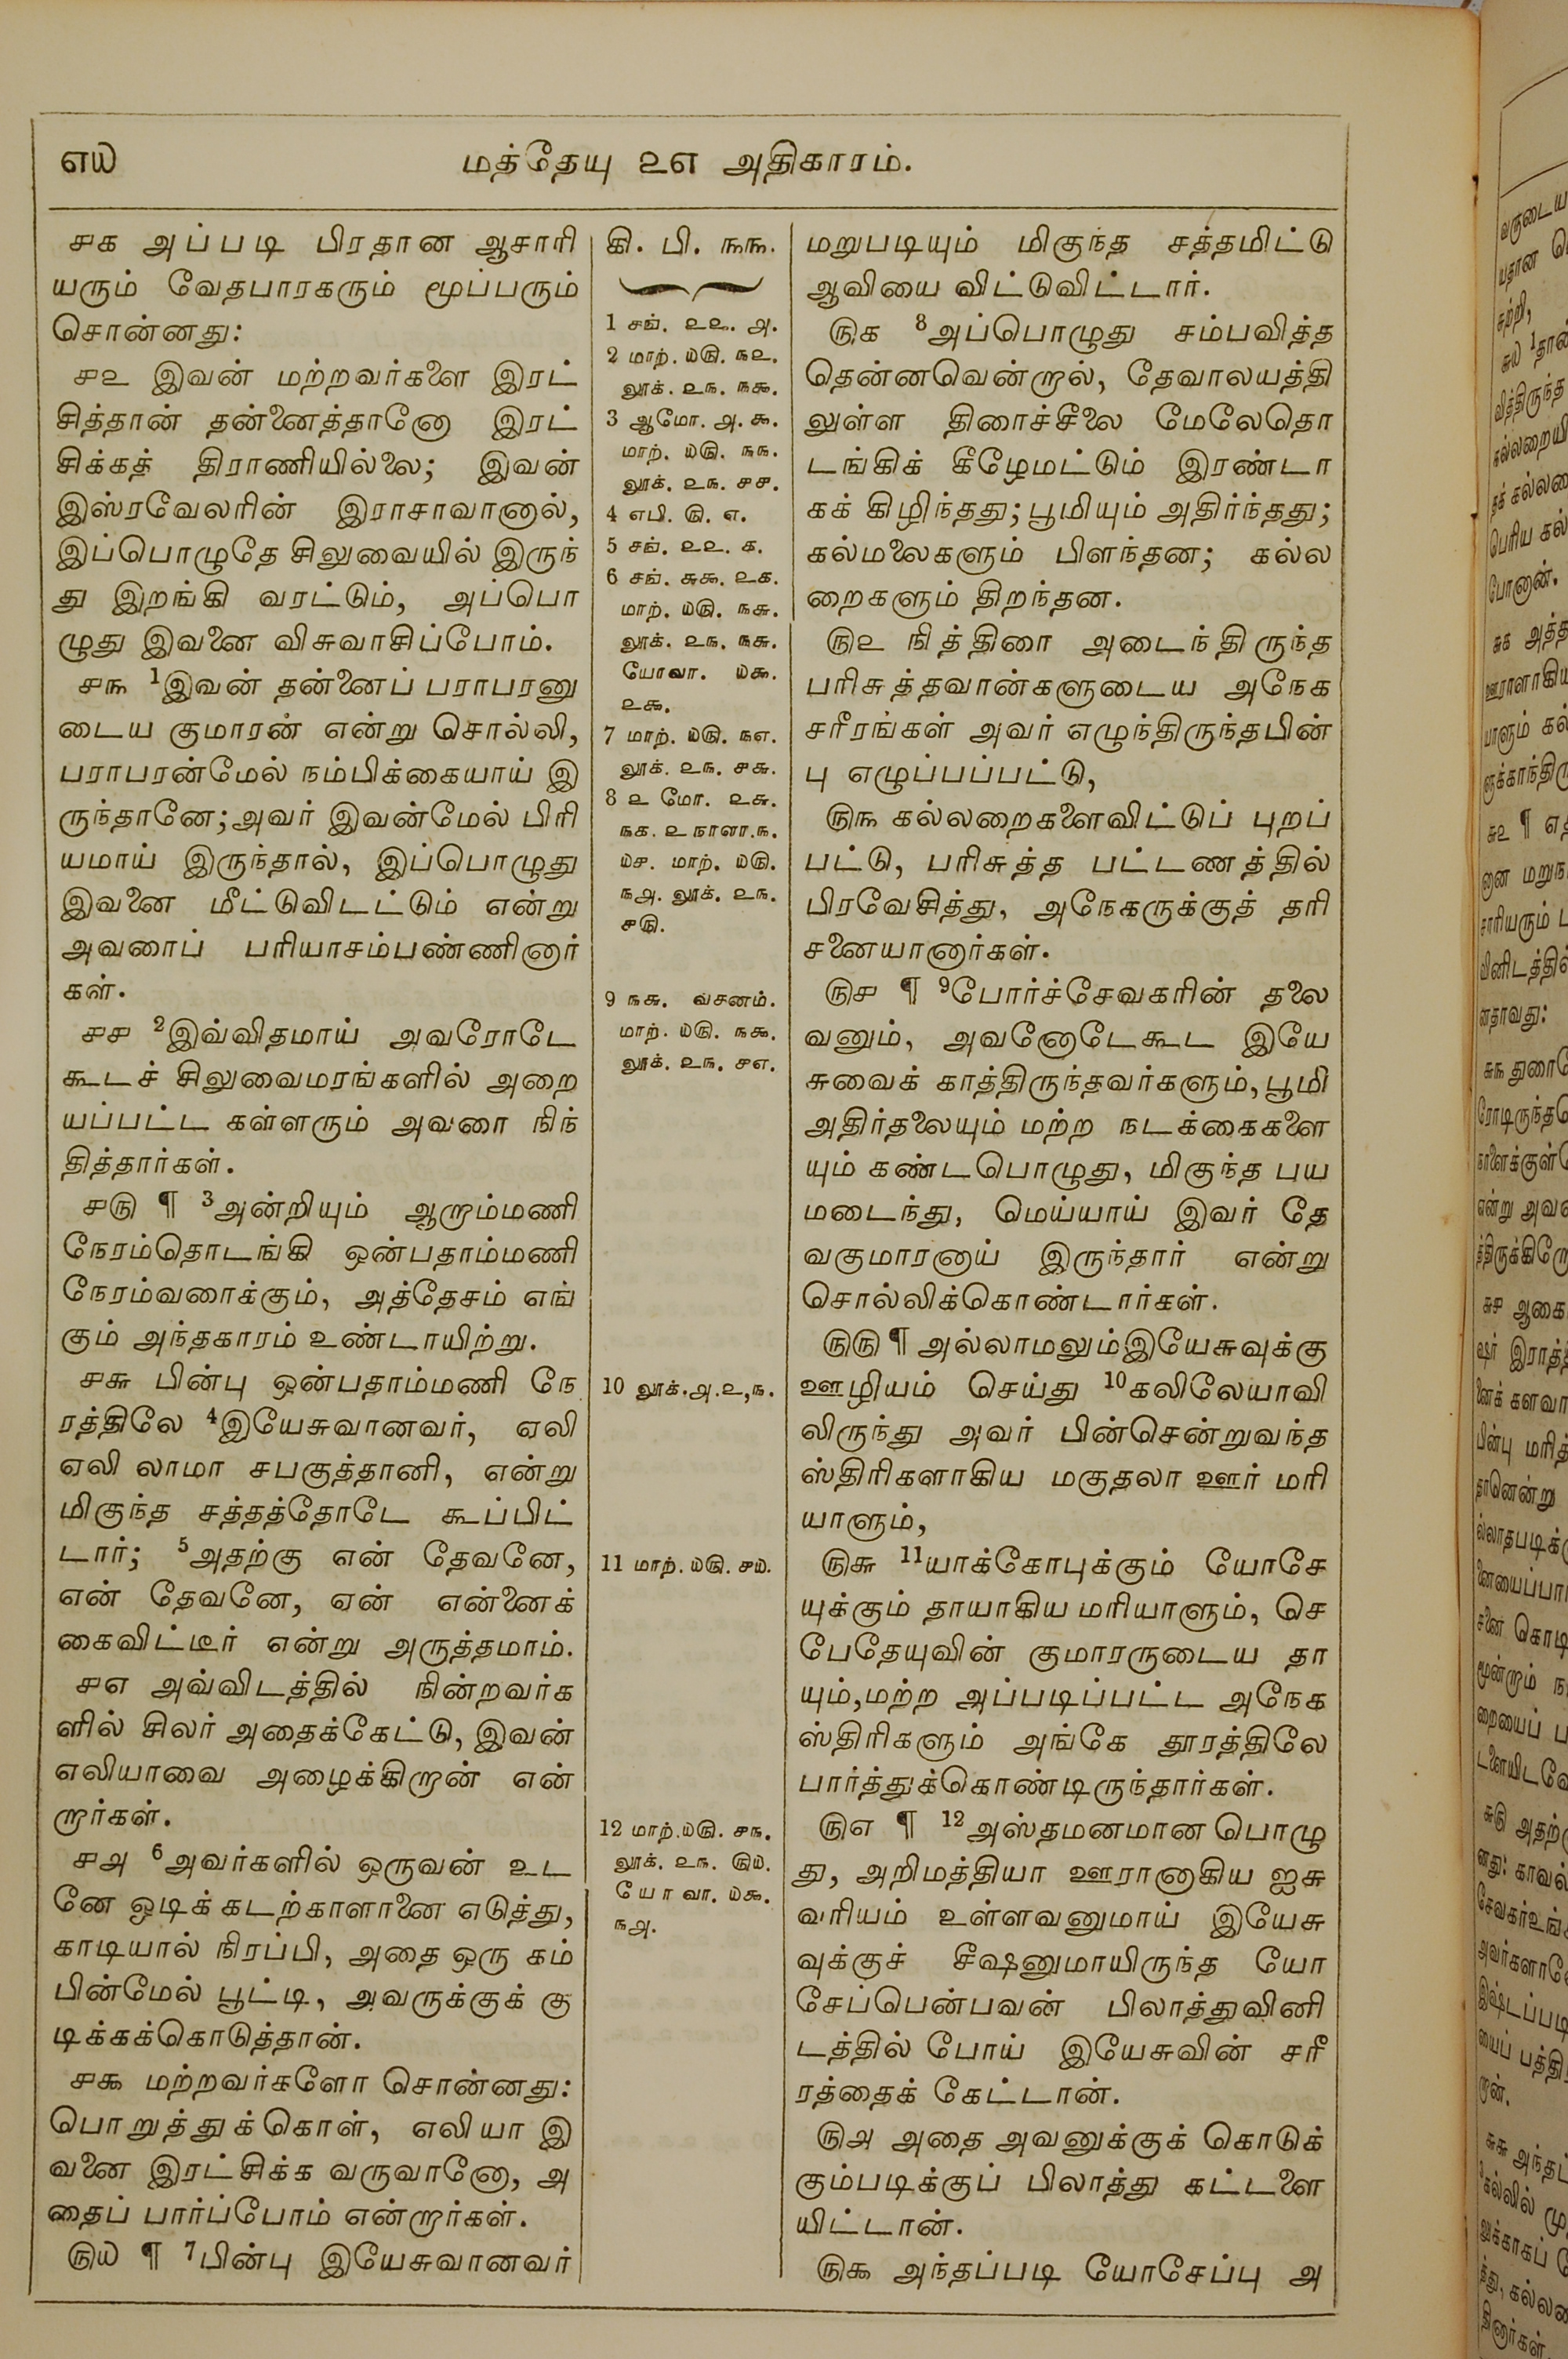 ௭௰
மத்தேயு ௨௭ அதிகாரம்.
௪௧ அப்படி பிரதான ஆசாரி
யரும் வேதபாரகரும் மூப்பரும்
சொன்னது:
௪௨ இவன் மற்றவர்களை இரட்
சித்தான் தன்னைத்தானோ இரட்
சிக்கத் திராணியில்லை; இவன்
இஸ்ரவேலரின் இராசாவானால்,
இப்பொழுதே சிலுவையில் இருந்
து இறங்கி வரட்டும், அப்பொ
ழுது இவனை விசுவாசிப்போம்.
௪௩ 1இவன் தன்னைப் பராபரனு
டைய குமாரன் என்று சொல்லி,
பராபரன்மேல் நம்பிக்கையாய் இ
ருந்தானே; அவர் இவன்மேல் பிரி
யமாய் இருந்தால், இப்பொழுது
இவனை மீட்டுவிடட்டும் என்று
அவரைப் பரியாசம்பண்ணினார்
கள்.
௪௪ 2இவ்விதமாய் அவரோடே
கூடச் சிலுவைமரங்களில் அறை
யப்பட்ட கள்ளரும் அவரை நிந்
தித்தார்கள்.
௪௫ ¶ 3அன்றியும் ஆறாம்மணி
நேரம்தொடங்கி ஒன்பதாம்மணி
நேரம்வரைக்கும், அத்தேசம் எங்
கும் அந்தகாரம் உண்டாயிற்று.
௪௬ பின்பு ஒன்பதாம்மணி நே
ரத்திலே 4இயேசுவானவர், ஏலி
ஏலி லாமா சபகுத்தானி, என்று
மிகுந்த சத்தத்தோடே கூப்பிட்
டார்; 5அதற்கு என் தேவனே,
என் தேவனே, ஏன் என்னைக்
கைவிட்டீர் என்று அருத்தமாம்.
௪௭ அவ்விடத்தில் நின்றவர்க
ளில் சிலர் அதைக்கேட்டு, இவன்
எலியாவை அழைக்கிறான் என்
றார்கள்.
௪௮ 6அவர்களில் ஒருவன் உட
னே ஓடிக் கடற்காளானை எடுத்து,
காடியால் நிரப்பி, அதை ஒரு கம்
பின்மேல் பூட்டி, அவருக்குக் கு
டிக்கக்கொடுத்தான்.
௪௯ மற்றவர்களோ சொன்னது:
பொறுத்துக்கொள், எலியா இ
வனை இரட்சிக்க வருவானோ, அ
தைப் பார்ப்போம் என்றார்கள்.
௫௰ ¶ 7பின்பு இயேசுவானவர்
கி. பி. ௩௩.
1 சங். ௨௨. ௮.
2 மாற். ௰௫. ௩௨.
லூக். ௨௩. ௩௯.
3 ஆமோ. ௮. ௯.
மாற். ௰௫. ௩௩.
லூக். ௨௩. ௪௪.
4 எபி. ௫. ௭.
5 சங். ௨௨. ௧.
6 சங். ௬௯. ௨௧.
மாற். ௰௫. ௩௬.
லூக். ௨௩. ௩௬.
யோவா. ௰௯.
௨௯.
7 மாற். ௰௫. ௩௭.
லூக். ௨௩. ௪௬.
8 ௨ மோ. ௨௬.
௩௧. ௨ நாளா. ௩.
௰௪. மாற். ௰௫.
௩௮. லூக். ௨௩.
௪௫.
9 ௩௬. வசனம்.
மாற். ௰௫. ௩௯.
லூக். ௨௩. ௪௭.
10 லூக். ௮. ௨,௩.
11 மாற். ௰௫. ௪௰.
12 மாற். ௰௫. ௪௩.
லூக். ௨௩. ௫௰.
யோவா. ௰௯.
௩௮.
மறுபடியும் மிகுந்த சத்தமிட்டு
ஆவியை விட்டுவிட்டார்.
௫௧ 8அப்பொழுது சம்பவித்த
தென்னவென்றால், தேவாலயத்தி
லுள்ள திரைச்சீலை மேலேதொ
டங்கிக் கீழேமட்டும் இரண்டா
கக் கிழிந்தது; பூமியும் அதிர்ந்தது;
கல்மலைகளும் பிளந்தன; கல்ல
றைகளும் திறந்தன.
௫௨ நித்திரை அடைந்திருந்த
பரிசுத்தவான்களுடைய அநேக
சரீரங்கள் அவர் எழுந்திருந்தபின்
பு எழுப்பப்பட்டு,
௫௩ கல்லறைகளைவிட்டுப் புறப்
பட்டு, பரிசுத்த பட்டணத்தில்
பிரவேசித்து, அநேகருக்குத் தரி
சனையானார்கள்.
௫௪ ¶ 9போர்ச்சேவகரின் தலை
வனும், அவனோடேகூட இயே
சுவைக் காத்திருந்தவர்களும், பூமி
அதிர்தலையும் மற்ற நடக்கைகளை
யும் கண்டபொழுது, மிகுந்த பய
மடைந்து, மெய்யாய் இவர் தே
வகுமாரனாய் இருந்தார் என்று
சொல்லிக்கொண்டார்கள்.
௫௫ ¶ அல்லாமலும் இயேசுவுக்கு
ஊழியம் செய்து 10கலிலேயாவி
லிருந்து அவர் பின்சென்றுவந்த
ஸ்திரிகளாகிய மகுதலா ஊர் மரி
யாளும்,
௫௬ 11யாக்கோபுக்கும் யோசே
யுக்கும் தாயாகிய மரியாளும், செ
பேதேயுவின் குமாரருடைய தா
யும், மற்ற அப்படிப்பட்ட அநேக
ஸ்திரிகளும் அங்கே தூரத்திலே
பார்த்துக்கொண்டிருந்தார்கள்.
௫௭ ¶ 12அஸ்தமனமான பொழு
து, அறிமத்தியா ஊரானாகிய ஐசு
வரியம் உள்ளவனுமாய் இயேசு
வுக்குச் சீஷனுமாயிருந்த யோ
சேப்பென்பவன் பிலாத்துவினி
டத்தில் போய் இயேசுவின் சரீ
ரத்தைக் கேட்டான்.
௫௮ அதை அவனுக்குக் கொடுக்
கும்படிக்குப் பிலாத்து கட்டளை
யிட்டான்.
௫௯ அந்தப்படி யோசேப்பு அ